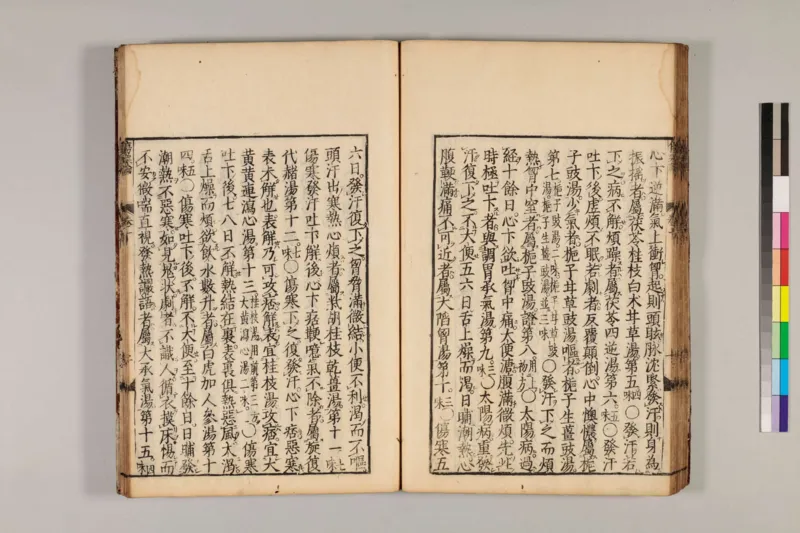 心下逆滿氣上衝胷起則頭眩脉沈緊發汗則身為
振搖者屬茯苓桂枝白木甘草湯第五四味○發汗若
下之病不解煩躁者屬茯苓四逆湯第六五味○發汗
吐下後虛煩不眠若劇者反覆顛倒心中懊憹屬梔
子豉湯少氣者梔子甘草豉湯嘔者梔子生薑豉湯
第七梔子豉湯二味梔子甘草豉湯梔子生薑豉湯並三味○發汗下之而煩
熱胷中窒者屬梔子豉湯證第八用上初方○太陽病過
經十餘日心下欲吐胷中痛大便溏腹滿微煩先此
時極吐下者與調胃承氣湯第九三味○太陽病重發
汗復下之不大便五六日舌上燥而渴日晡潮熱心
腹鞕滿痛不可近者屬大陷胷湯第十三味○傷寒五
六日發汗復下之胷脅滿微結小便不利渴而不嘔
頭汗出寒熱心煩者屬柴胡桂枝乾薑湯第十一七味
傷寒發汗吐下解後心下痞鞕噫氣不除者屬旋復
代赭湯第十二七味○傷寒下之復發汗心下痞惡寒
表未解也表解乃可攻痞解表宜桂枝湯攻痞宜大
黃黃連瀉心湯第十三桂枝湯用前第三方大黃瀉心湯二味○傷寒
吐下後七八日不解熱結在裏表裏俱熱惡風大渴
舌上燥而煩欲飲水數升者屬白虎加人參湯第十
四五味○傷寒吐下後不解不大便至十餘日日晡發
潮熱不惡寒如見鬼狀劇者不識人循衣摸床惕而
不安微喘直視發熱譫語者屬大承氣湯第十五四味